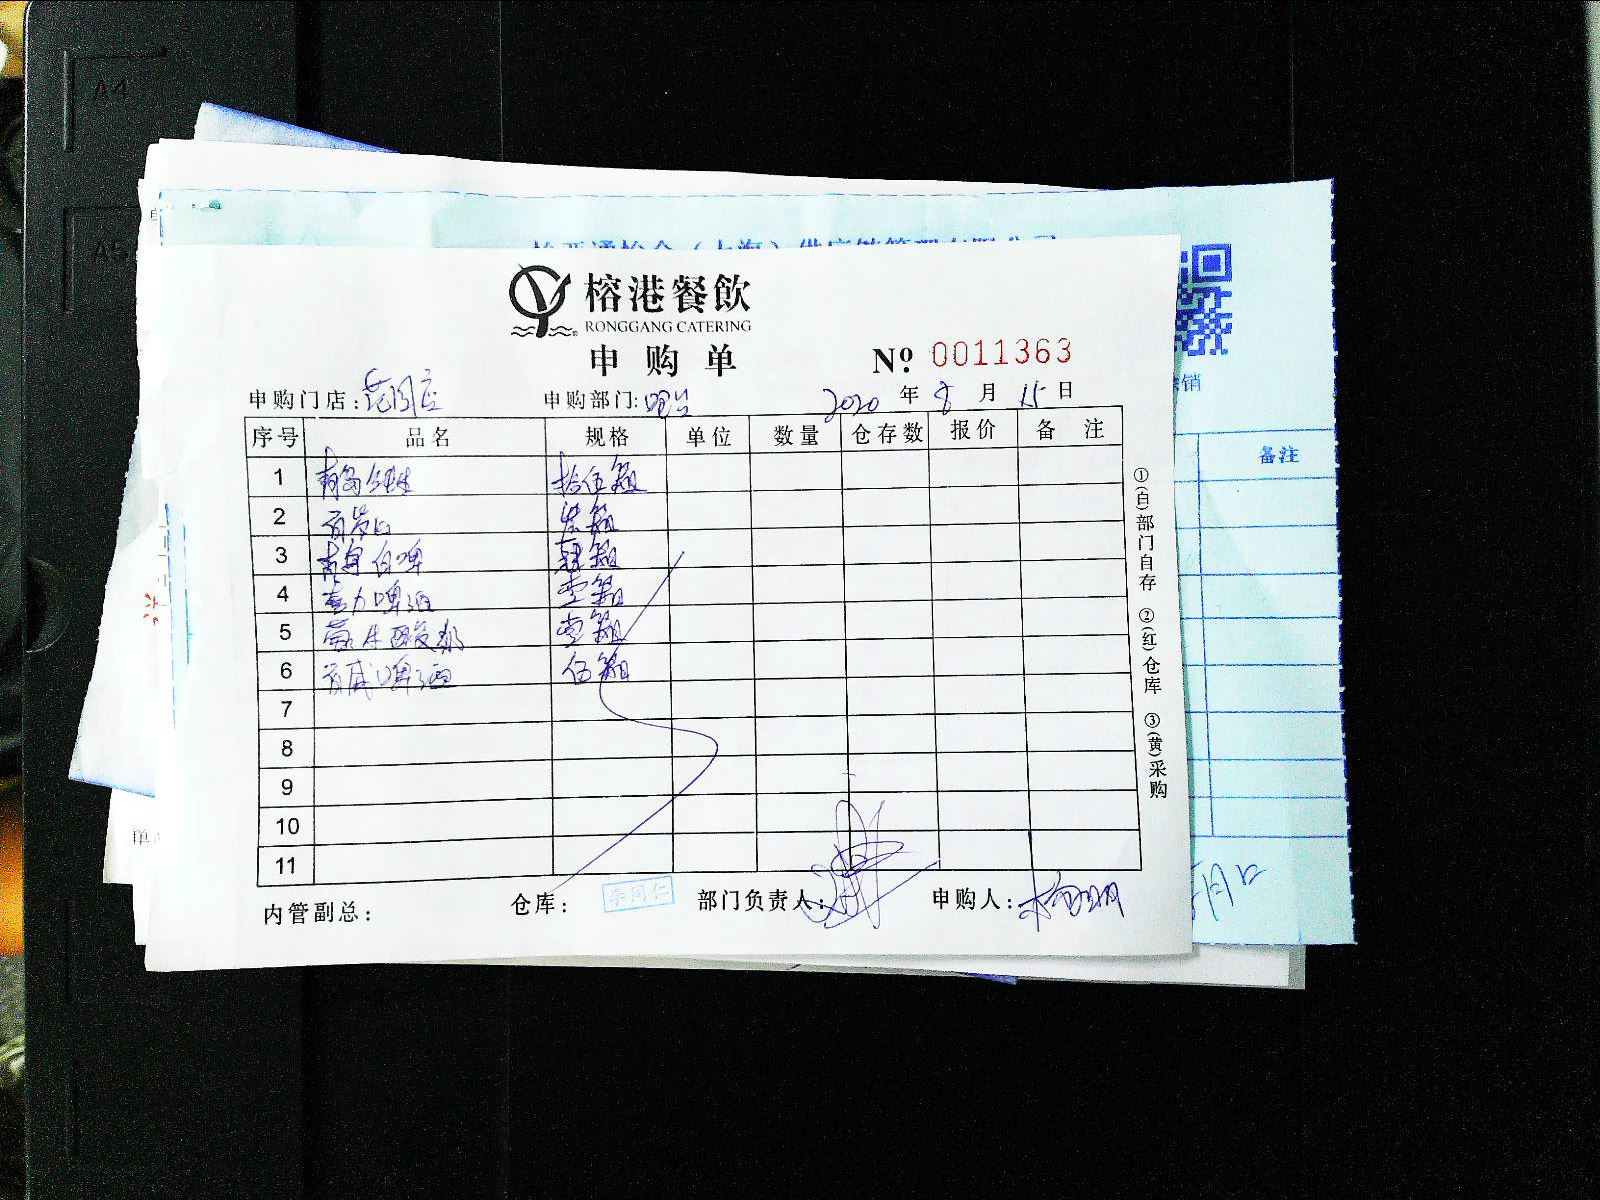 A4
A5
榕港餐飲
RONGGANG CATERING
申购单
№ 0011363
申购门店:花园店 申购部门:吧台 2020年8月15日
序号 品名 规格 单位 数量 仓存数 报价 备注
1 青岛纯生 拾伍箱
2 箱
3 白啤 箱
4 啤酒 壹箱
5 蒙牛酸奶 壹箱
6 百威啤酒 伍箱
7
8
9
10
11
内管副总: 仓库: 李同仁 部门负责人: 申购人:
①(白)部门自存 ②(红)仓库 ③(黄)采购
销
备注